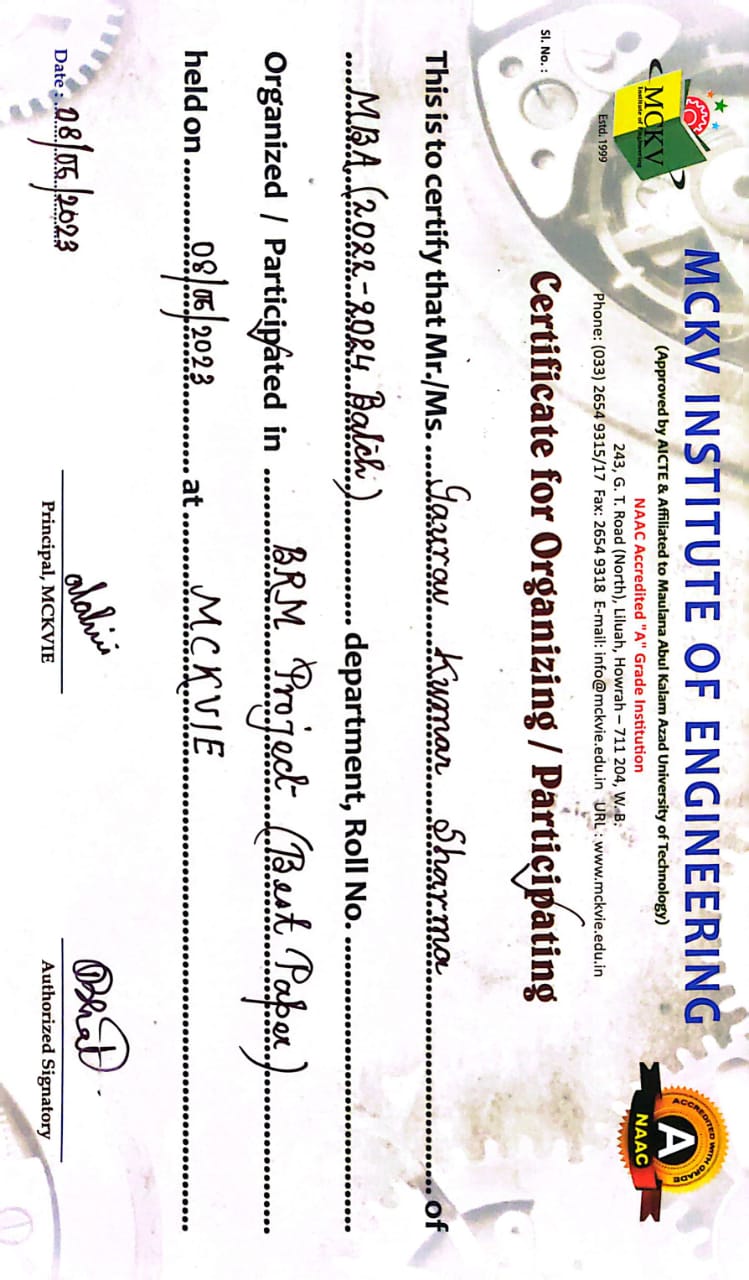 MCKV INSTITUTE OF ENGINEERING
(Approved by AICTE & Affiliated to Maulana Abul Kalam Azad University of Technology)
NAAC Accredited "A" Grade Institution
243, G. T. Road (North), Liluah, Howrah – 711 204, W. B.
Phone: (033) 2654 9315/17 Fax: 2654 9318 E-mail: info@mckvie.edu.in URL : www.mckvie.edu.in
MCKV
Institute of Engineering
Estd. 1999
ACCREDITED WITH GRADE
A
NAAC
Sl. No. :
Certificate for Organizing / Participating
This is to certify that Mr./Ms. Gaurav Kumar Sharma of
MBA (2022-2024 Batch) department, Roll No.
Organized / Participated in BRM Project (Best Paper)
held on 08/05/2023 at MCKVIE
Date : 08/05/2023
Principal, MCKVIE
Authorized Signatory